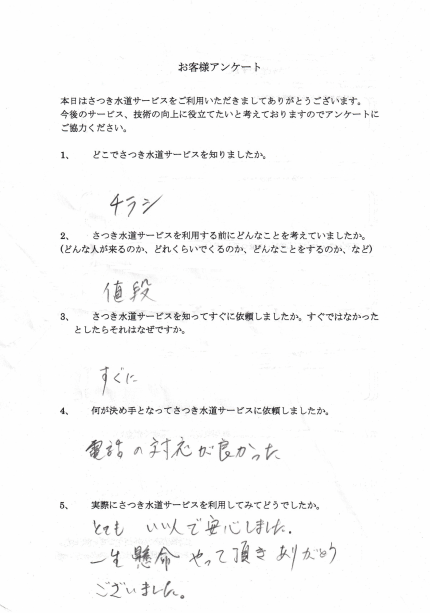 お客様アンケート
本日はさつき水道サービスをご利用いただきましてありがとうございます。
今後のサービス、技術の向上に役立てたいと考えておりますのでアンケートに
ご協力ください。
1、 どこでさつき水道サービスを知りましたか。
チラシ
2、 さつき水道サービスを利用する前にどんなことを考えていましたか。
(どんな人が来るのか、どれくらいでくるのか、どんなことをするのか、など)
値段
3、 さつき水道サービスを知ってすぐに依頼しましたか。すぐではなかった
としたらそれはなぜですか。
すぐに
4、 何が決め手となってさつき水道サービスに依頼しましたか。
電話の対応が良かった
5、 実際にさつき水道サービスを利用してみてどうでしたか。
とても いい人で安心しました.
一生懸命 やって頂き ありがとう
ございました。